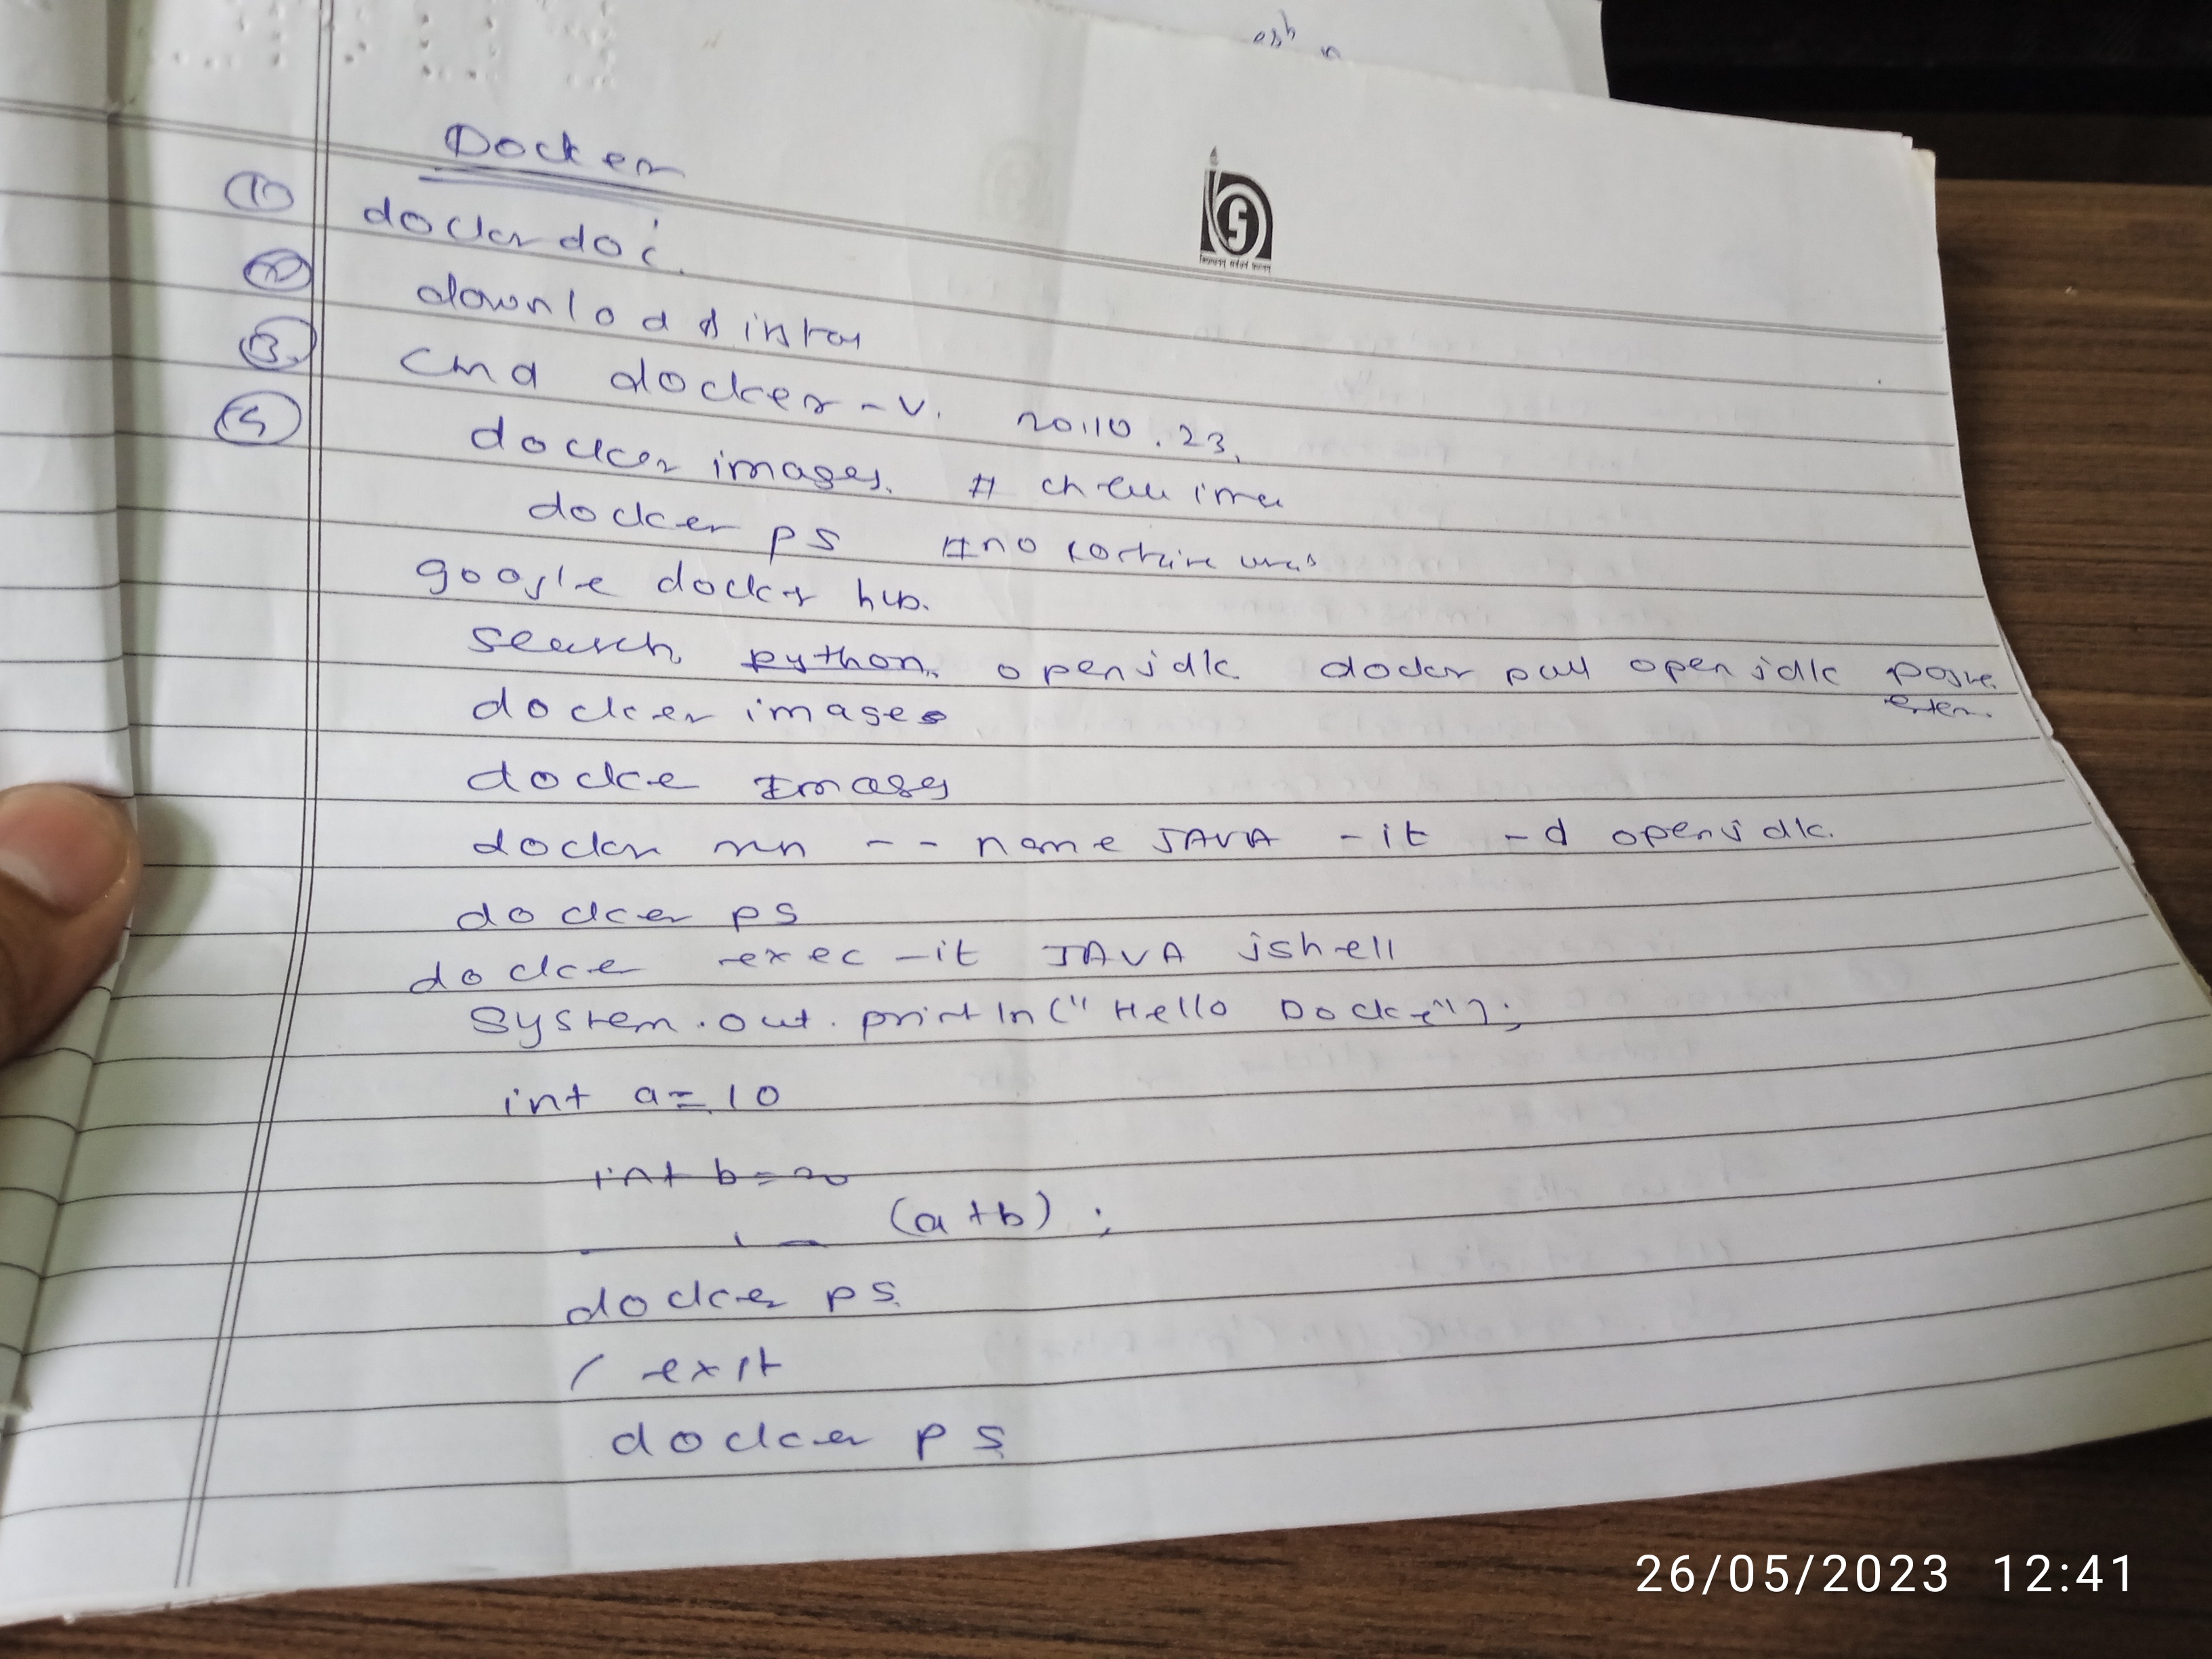 Docker
① docker doc.
② download instal
③ cmd docker -v. 20.10.23.
④ docker images. # check
docker ps #no
google docker hub.
search python. openjdk docker pull openjdk paste
enter.
docker images
docke Images
docker run -- name JAVA -it -d openjdk.
docker ps
docke exec -it JAVA jshell
System.out.println("Hello Docker");
int a=10
int b=20
(a+b);
docker ps
/ exit
docker ps
26/05/2023 12:41